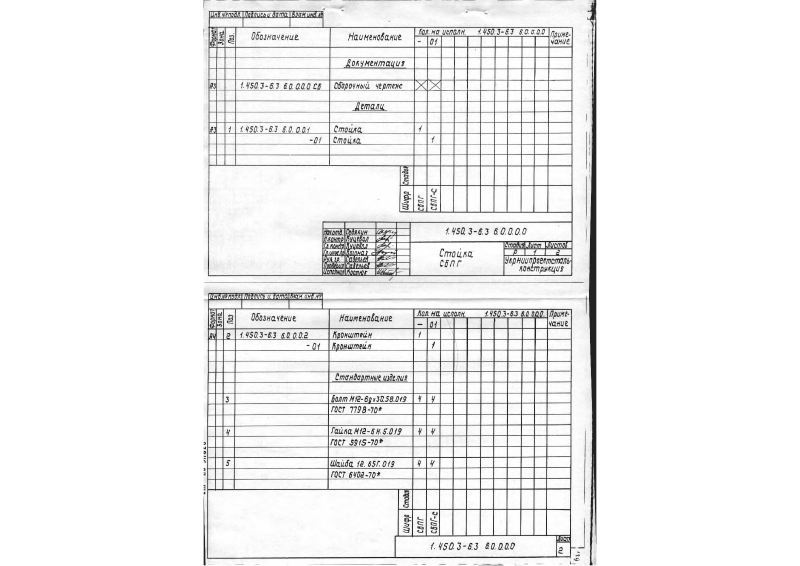 Инв.№подл. Подпись и дата Взам.инв.№
Формат Зона Поз. Обозначение Наименование Кол. на исполн. 1.450.3-6.3 6.0.0.0.0 Приме-чание
– 01
Документация
А3 1.450.3-6.3 6.0.0.0.0 СБ Сборочный чертеж
Детали
А3 1 1.450.3-6.3 6.0.0.0.1 Стойка 1
-01 Стойка 1
Шифр Стадия
СБПГ СБПГ-С
1.450.3-6.3 6.0.0.0.0
Стойка
СБПГ
Стадия Лист Листов
Р 1 2
Укрниипроектсталь-
конструкция
Инв.№подл. Подпись и дата Взам.инв.№
Формат Зона Поз. Обозначение Наименование Кол. на исполн. 1.450.3-6.3 6.0.0.0.0 Приме-чание
– 01
А4 2 1.450.3-6.3 6.0.0.0.2 Кронштейн 1
-01 Кронштейн 1
Стандартные изделия
3 Болт М12-6g×30.58.019 4 4
ГОСТ 7798-70*
4 Гайка М12-6Н.5.019 4 4
ГОСТ 5915-70*
5 Шайба 12.65Г.019 4 4
ГОСТ 6402-70*
Шифр Стадия
СБПГ СБПГ-С
1.450.3-6.3 6.0.0.0.0
Лист
2